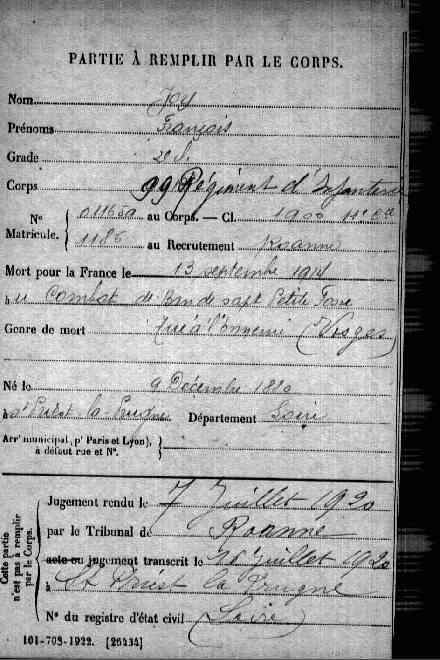 PARTIE À REMPLIR PAR LE CORPS.
Nom
Prénoms François
Grade 2e S.
Corps 99 Régiment d'Infanterie
Nº Matricule. { 011659 au Corps. — Cl. 1900
1186 au Recrutement Roanne
Mort pour la France le 13 septembre 1914
à u Combat de Ban de sapt Petite Fosse
Genre de mort tué à l'Ennemi (Vosges)
Né le 9 Décembre 1880
à St Priest la Prugne Département Loire
Arrᵗ municipal (pʳ Paris et Lyon), à défaut rue et Nº. }
Cette partie n'est pas à remplir par le Corps.
Jugement rendu le 7 Juillet 1920
par le Tribunal de Roanne
acte ou jugement transcrit le 16 juillet 1920
à St Priest la Prugne
Nº du registre d'état civil (Loire)
101-708-1922. [26434]